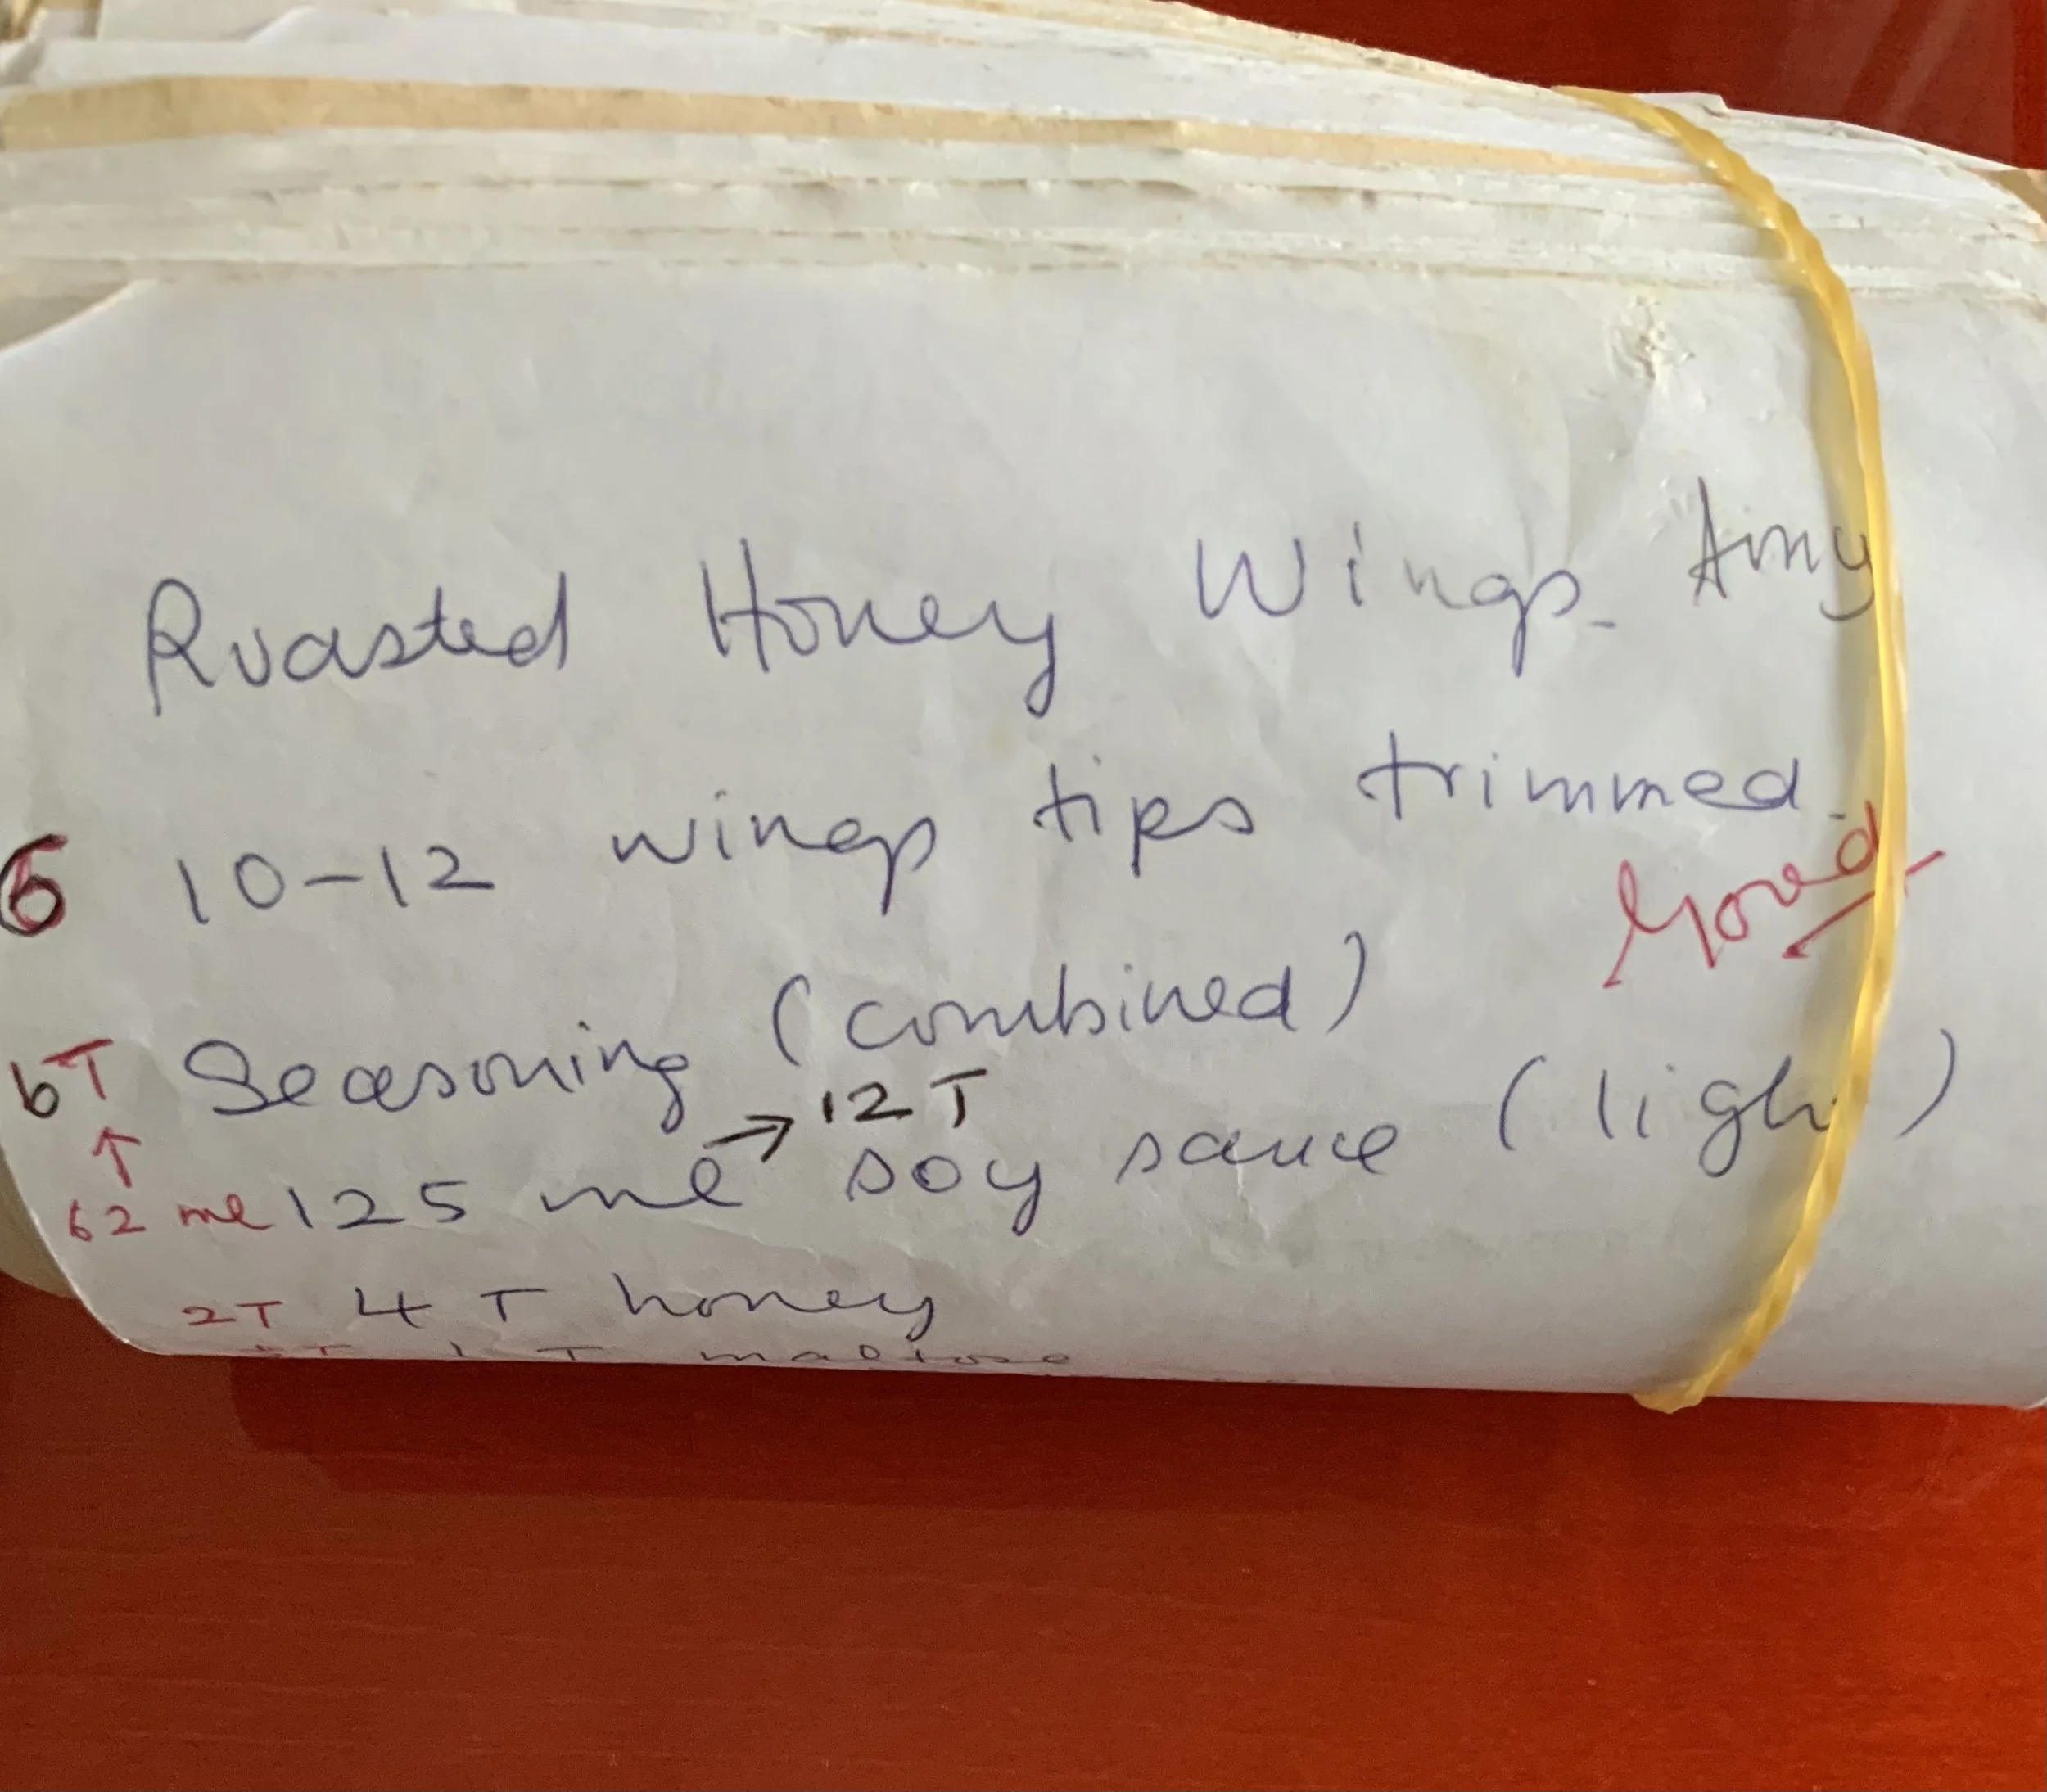 Roasted Honey Wings - Amy
6 10-12 wings tips trimmed.
Good
6T Seasoning (combined)
↑ → 12 T
62 ml 125 ml soy sauce (light)
2T 4 T honey
1 T maltose